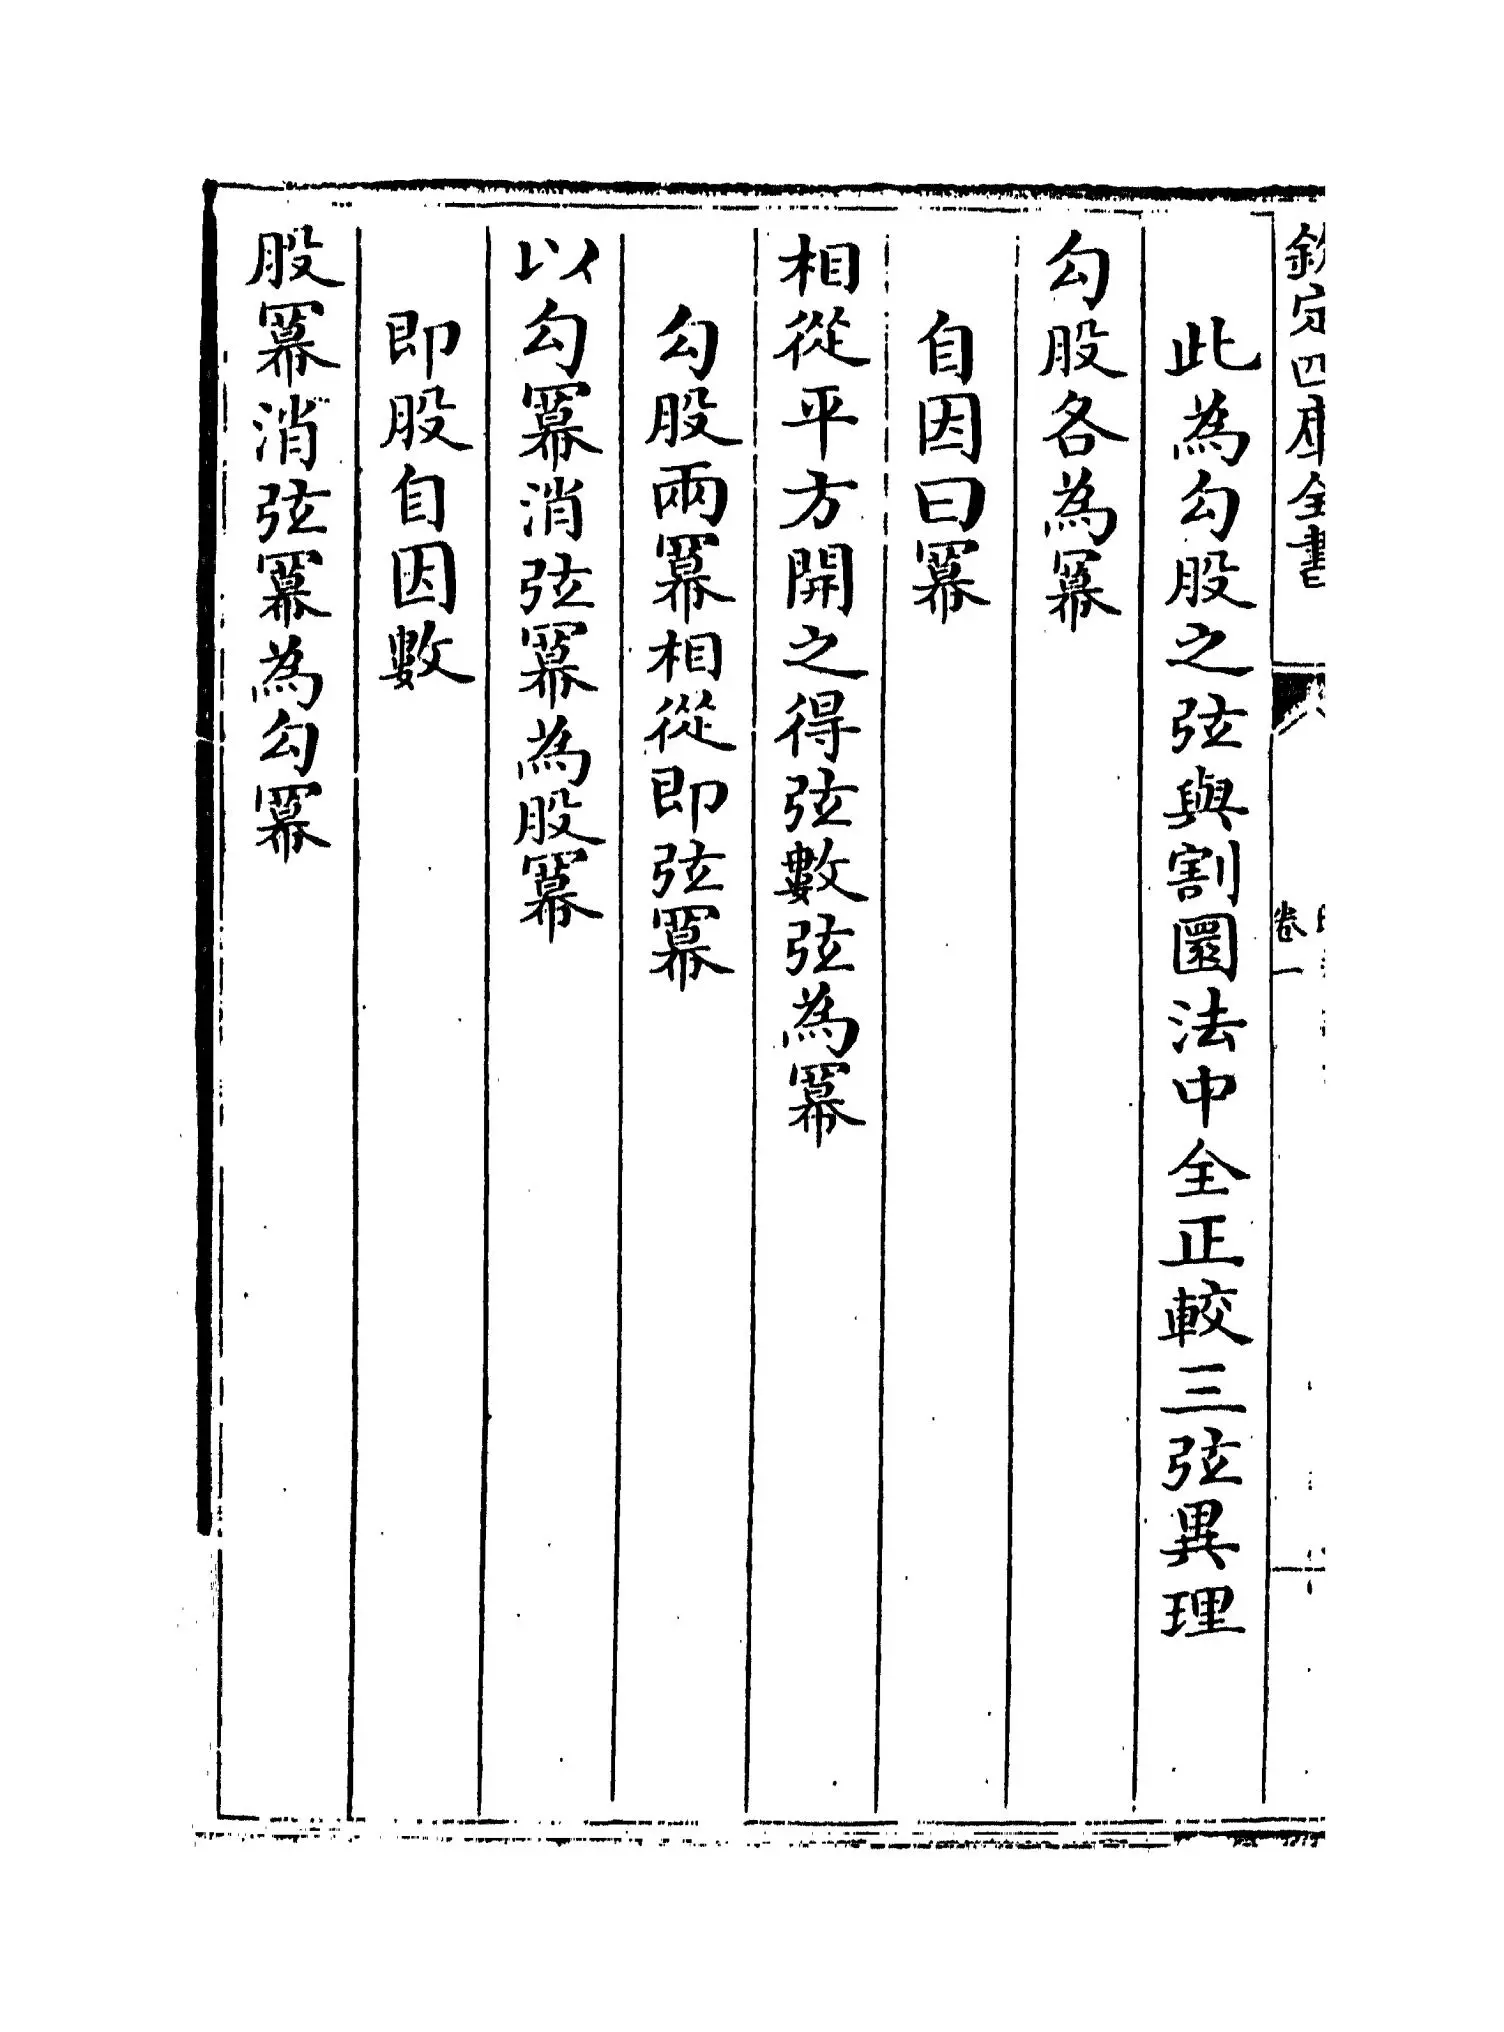 欽定四庫全書
卷一
此為勾股之弦與割圜法中全正較三弦異理
勾股各為冪
自因曰冪
相從平方開之得弦數弦為冪
勾股兩冪相從即弦冪
以勾冪消弦冪為股冪
即股自因數
股冪消弦冪為勾冪